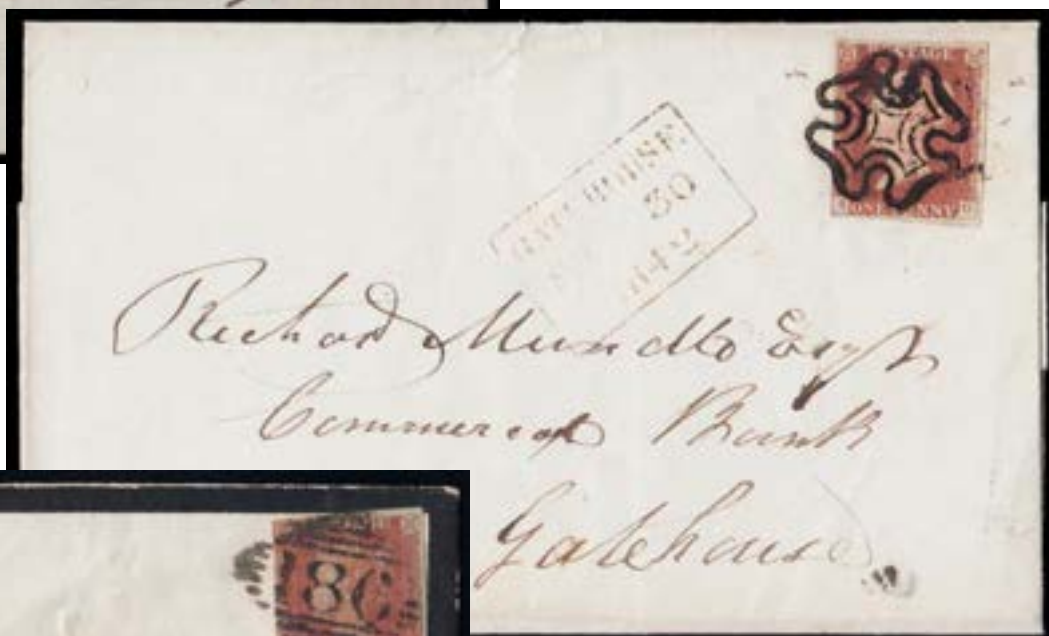 POSTAGE
ONE PENNY
GATEHOUSE
30
1842
Richard Mundle Esqr
Commercial Bank
Gatehouse
86